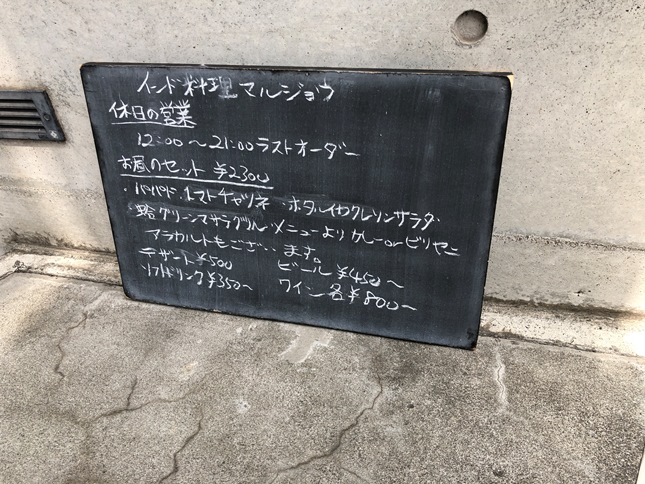 インド料理 マルジョウ
休日の営業
12:00〜21:00ラストオーダー
お昼のセット ¥2300
・パパド・トマトチャツネ ・ホタルイカクレソンサラダ
・グリーンマサラグリル・メニューよりカレーorビリヤニ
アラカルトもございます。
デザート¥500 ビール¥450〜
ソフトドリンク¥350〜 ワイン各¥800〜